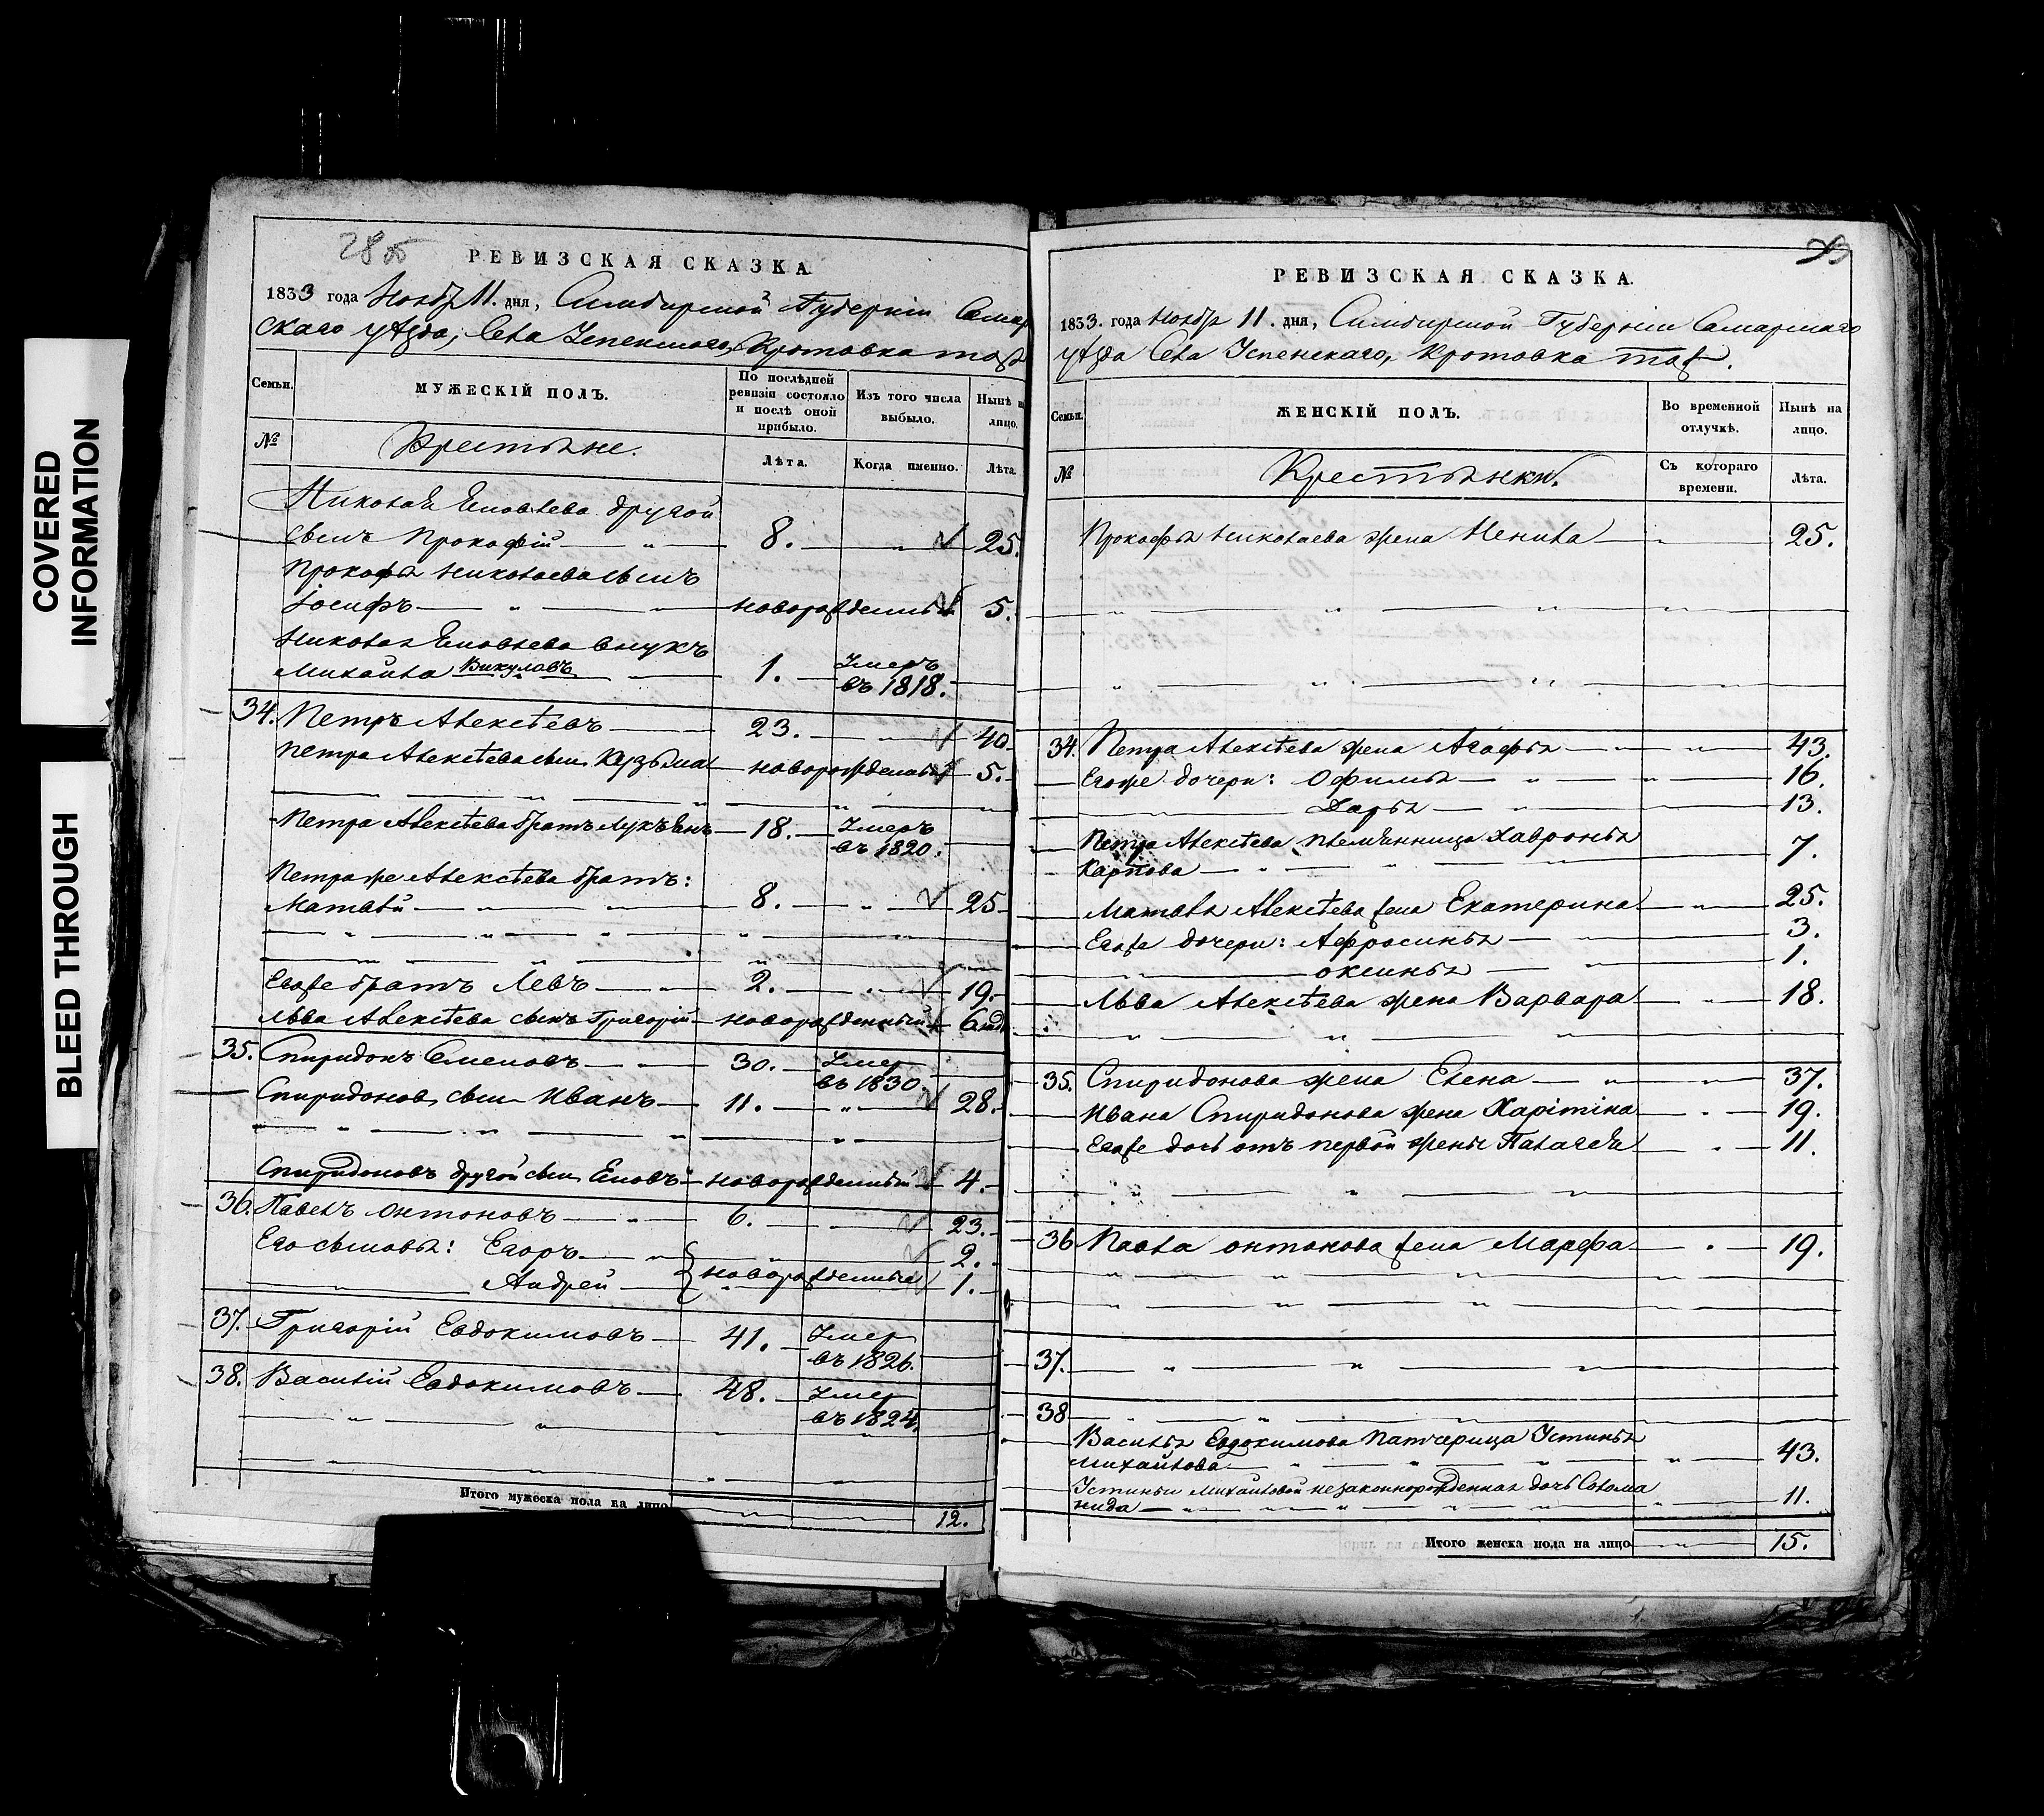 COVERED
INFORMATION
BLEED THROUGH
РЕВИЗСКАЯ СКАЗКА
1833 года Ноября 11. дня, Симбирской Губерніи Самар
скаго уѣзда, Села Успенскаго, Кротовка тож
Семьи.
МУЖЕСКІЙ ПОЛЪ.
По послѣдней ревизіи состояло и послѣ оной прибыло.
Изъ того числа выбыло.
Нынѣ на лицо.
№
Крестьяне.
Лѣта.
Когда именно.
Лѣта.
Николая Емовлева другой
сынъ Прокофій — 8. — „ — 25.
Прокофья Николаева сынъ
Іосифъ — новорожденный 5.
Николая Емовлева внукъ
Михайла Викуловъ — 1. — Умеръ въ 1818.
34. Петръ Алексѣевъ — 23. — 40.
Петра Алексѣева сын Кузьма — новорожденный 5.
Петра Алексѣева братъ Лукьянъ — 18. — Умеръ въ 1820.
Петра же Алексѣева братъ:
Матвѣй — 8. — „ — 25
Егоже братъ Левъ — 2. — „ — 19.
Льва Алексѣева сынъ Григорій — новорожденный 6 нед
35. Спиридонъ Семеновъ — 30. — Умер въ 1830.
Спиридонов сын Иванъ — 11. — „ — 28.
Спиридоновъ другой сын Емовъ — новорожденный 4.
36. Павелъ Онтоновъ — 6. — 23.
Его сыновья: Егоръ — „ 2.
Андрей — новорожденные 1.
37. Григорій Евдокимовъ — 41. — Умер въ 1826.
38. Василій Евдокимовъ — 48. — Умер въ 1824.
Итого мужеска пола на лицо 12.
РЕВИЗСКАЯ СКАЗКА.
1833. года Ноябр 11. дня, Симбирской Губерніи Самарскаго
уѣзда Села Успенскаго, Кротовка тож.
Семьи.
ЖЕНСКІЙ ПОЛЪ.
Во временной отлучкѣ.
Нынѣ на лицо.
№
Крестьянки.
Съ котораго времени.
Лѣта.
Прокофья Николаева жена Ненила — 25.
34. Петра Алексѣева жена Агафья — „ — 43.
Егоже дочери: Офимья — „ — 16.
Дарья — „ — 13.
Петра Алексѣева племянница Хавронья
Карпова — 7.
Матвѣя Алексѣева жена Екатерина — „ — 25.
Егоже дочери: Афросинья — „ 3.
оксинья — „ 1.
Льва Алексѣева жена Варвара — „ — 18.
35. Спиридонова жена Елена — „ — 37.
Ивана Спиридонова жена Харітіна — 19.
Егоже дочь отъ первой жены Палагея — 11.
36 Павла онтонова жена Марфа — 19.
37.
38
Василья Евдокимова патчерица Устинья
Михайлова — 43.
Устиньи Михайловой незаконнорожденная дочь Солома
нида — 11.
Итого женска пола на лицо — 15.